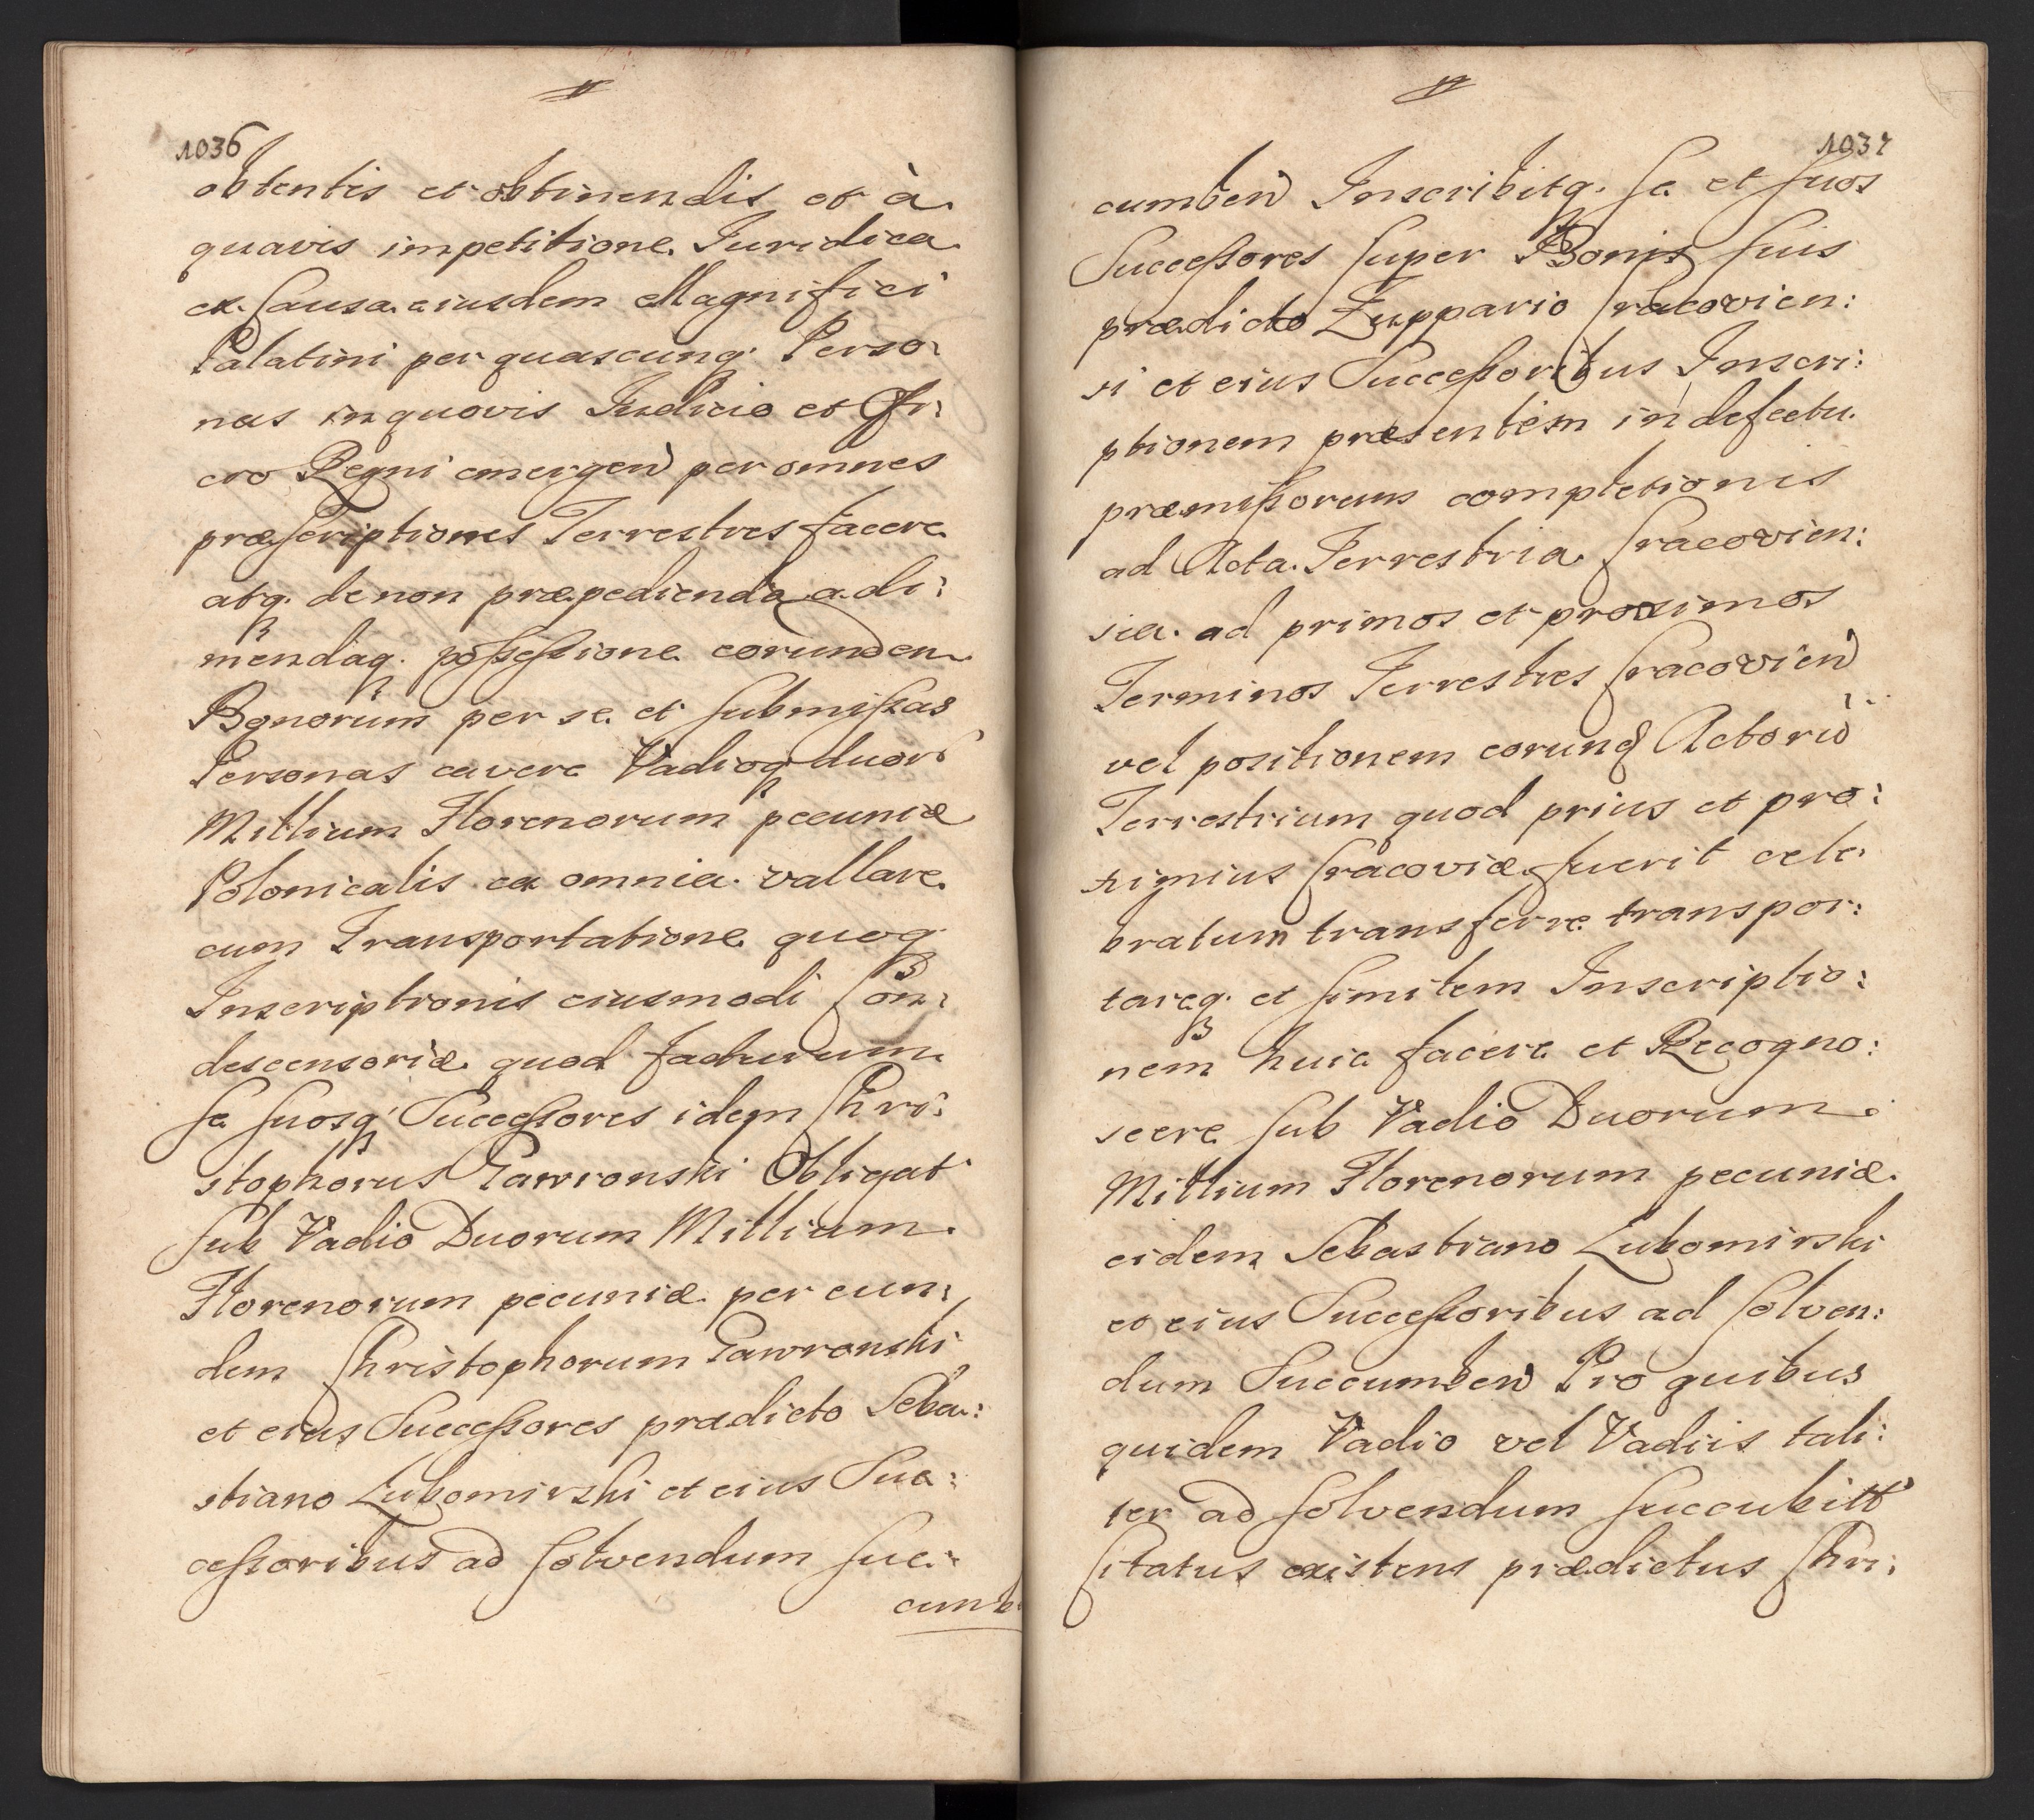 1036
obtentis et obtinendis et à
quavis impetitione Juridica
ex Causa eiusdem Magnifici
Palatini per quascunq Perso:
nas in quovis Judicio et Offi:
cio Regni emergen per omnes
præscriptiones Terrestres facere
atq de non præpedienda adi:
mendaq possessione eorundem
Bonorum per se et submissas
Personas cavere Vadioq duorū
Millium Florenorum pecuniæ
Polonicalis ea omnia vallare
cum Transportatione quoq
Inscriptionis eiusmodi Con:
descensoriæ quod facturum
se suosq Successores idem Chri:
stophorus Gawronski Obligat
sub Vadio Duorum Millium
Florenorum pecuniæ per eun:
dem Christophorum Gawronski
et eius Successores prædicto Seba:
stiano Lubomirski et eius Suc:
cessoribus ad solvendum suc:
cumb
1037
cumben Inscribitq se et suos
Successores super Bonis suis
prædicto Zuppario Cracovien:
si et eius Successoribus Inscri:
ptionem præsentem in defectu
præmissorum completionis
ad Acta Terrestria Cracovien:
sia ad primos et proximos
Terminos Terrestres Cracovien
vel positionem eorund Actorū
Terrestrium quod prius et pro:
ximius Cracoviæ fuerit cele
bratum transferre transpor:
tareq et similem Inscriptio:
nem huic facere et Recogno:
scere sub Vadio Duorum
Millium Florenorum pecuniæ
eidem Sebastiano Lubomirski
et eius Successoribus ad solven:
dum Succumben Pro quibus
quidem Vadio vel Vadiis tali:
ter ad solvendum succubitt
Citatus existens prædictus Chri: